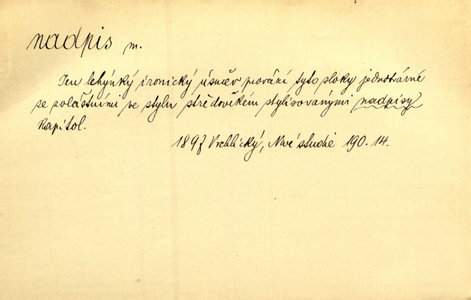 nadpis m.
Jen lehýnký ironický úsměv provází tyto sloky jednotvárné
se zvláštními ve stylu středověkém stylisovanými nadpisy
kapitol.
1897 Vrchlický, Nové studie 190.14.